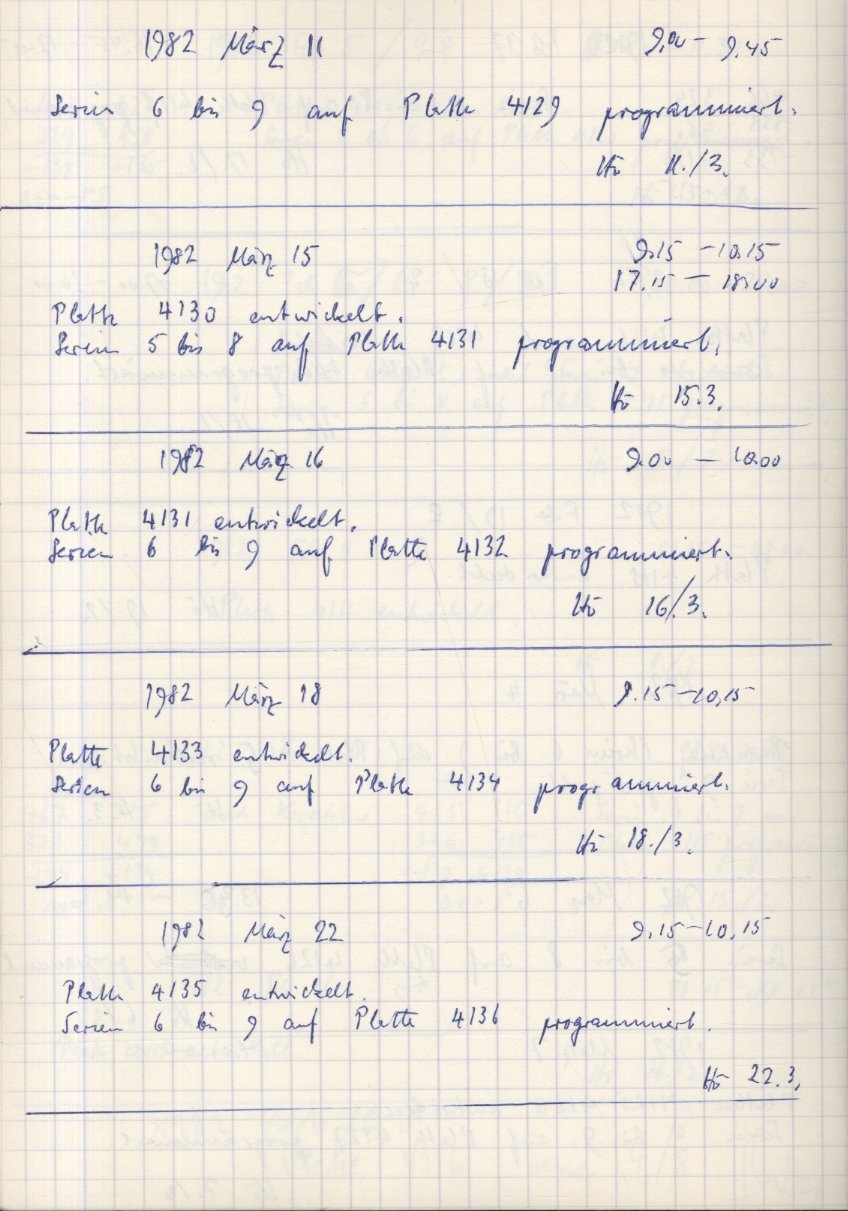 1982 März 11 9.00 – 9.45
Serien 6 bis 9 auf Platte 4129 programmiert.
Hö 11./3.
1982 März 15 9.15 – 10.15
17.15 – 18.00
Platte 4130 entwickelt.
Serien 5 bis 8 auf Platte 4131 programmiert.
Hö 15.3.
1982 März 16 9.00 – 10.00
Platte 4131 entwickelt.
Serien 6 bis 9 auf Platte 4132 programmiert.
Hö 16/3.
1982 März 18 9.15 – 10.15
Platte 4133 entwickelt.
Serien 6 bis 9 auf Platte 4134 programmiert.
Hö 18./3.
1982 März 22 9.15 – 10.15
Platte 4135 entwickelt.
Serien 6 bis 9 auf Platte 4136 programmiert.
Hö 22.3.